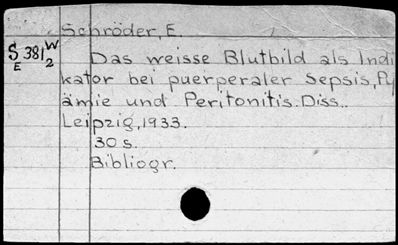 Schröder, E.
S 381 W
E 2
Das weisse Blutbild als Indi
kator bei puerperaler Sepsis, Py
ämie und Peritonitis. Diss..
Leipzig, 1933.
30 s.
Bibliogr.